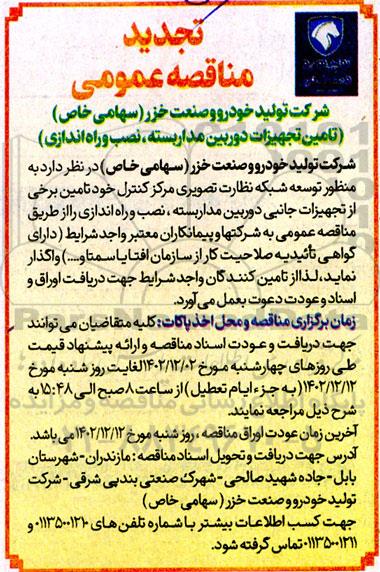 تجدید
مناقصه عمومی
شرکت تولید خودرو و صنعت خزر (سهامی خاص)
(تامین تجهیزات دوربین مداربسته، نصب و راه اندازی)
شرکت تولید خودرو و صنعت خزر (سهامی خاص) در نظر دارد به
منظور توسعه شبکه نظارت تصویری مرکز کنترل خود تامین برخی
از تجهیزات جانبی دوربین مداربسته، نصب و راه اندازی را از طریق
مناقصه عمومی به شرکتها و پیمانکاران معتبر واجد شرایط (دارای
گواهی تأئیدیه صلاحیت کار از سازمان افتا یا سمتا و....) واگذار
نماید، لذا از تامین کنندگان واجد شرایط جهت دریافت اوراق و
اسناد و عودت دعوت بعمل می آورد.
زمان برگزاری مناقصه و محل اخذ پاکات: کلیه متقاضیان می توانند
جهت دریافت و عودت اسناد مناقصه و ارائه پیشنهاد قیمت
طی روزهای چهارشنبه مورخ ۱۴۰۲/۱۲/۰۲ لغایت روز شنبه مورخ
۱۴۰۲/۱۲/۱۲ (به جز ایام تعطیل) از ساعت ۸ صبح الی ۱۵:۴۸ به
شرح ذیل مراجعه نمایند.
آخرین زمان عودت اوراق مناقصه، روز شنبه مورخ ۱۴۰۲/۱۲/۱۲ می باشد.
آدرس جهت دریافت و تحویل اسناد مناقصه: مازندران - شهرستان
بابل - جاده شهید صالحی - شهرک صنعتی بندپی شرقی - شرکت
تولید خودرو و صنعت خزر (سهامی خاص)
جهت کسب اطلاعات بیشتر با شماره تلفن های ۰۱۱۳۵۰۰۱۲۱۰ و
۰۱۱۳۵۰۰۱۲۱۱ تماس گرفته شود.